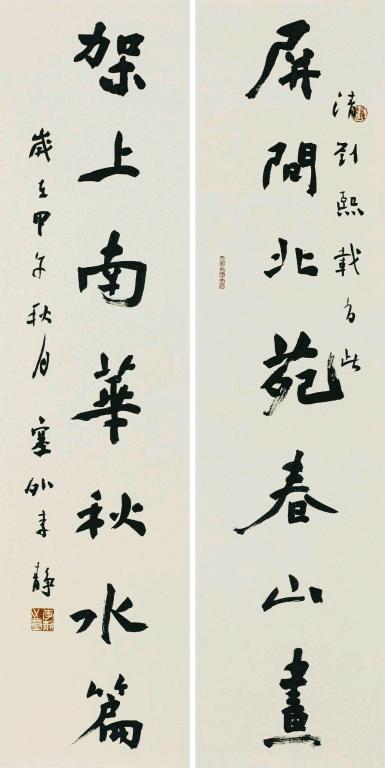 清刘熙載有此
屏間北苑春山畫
架上南華秋水篇
歲在甲午秋月 塞外李靜